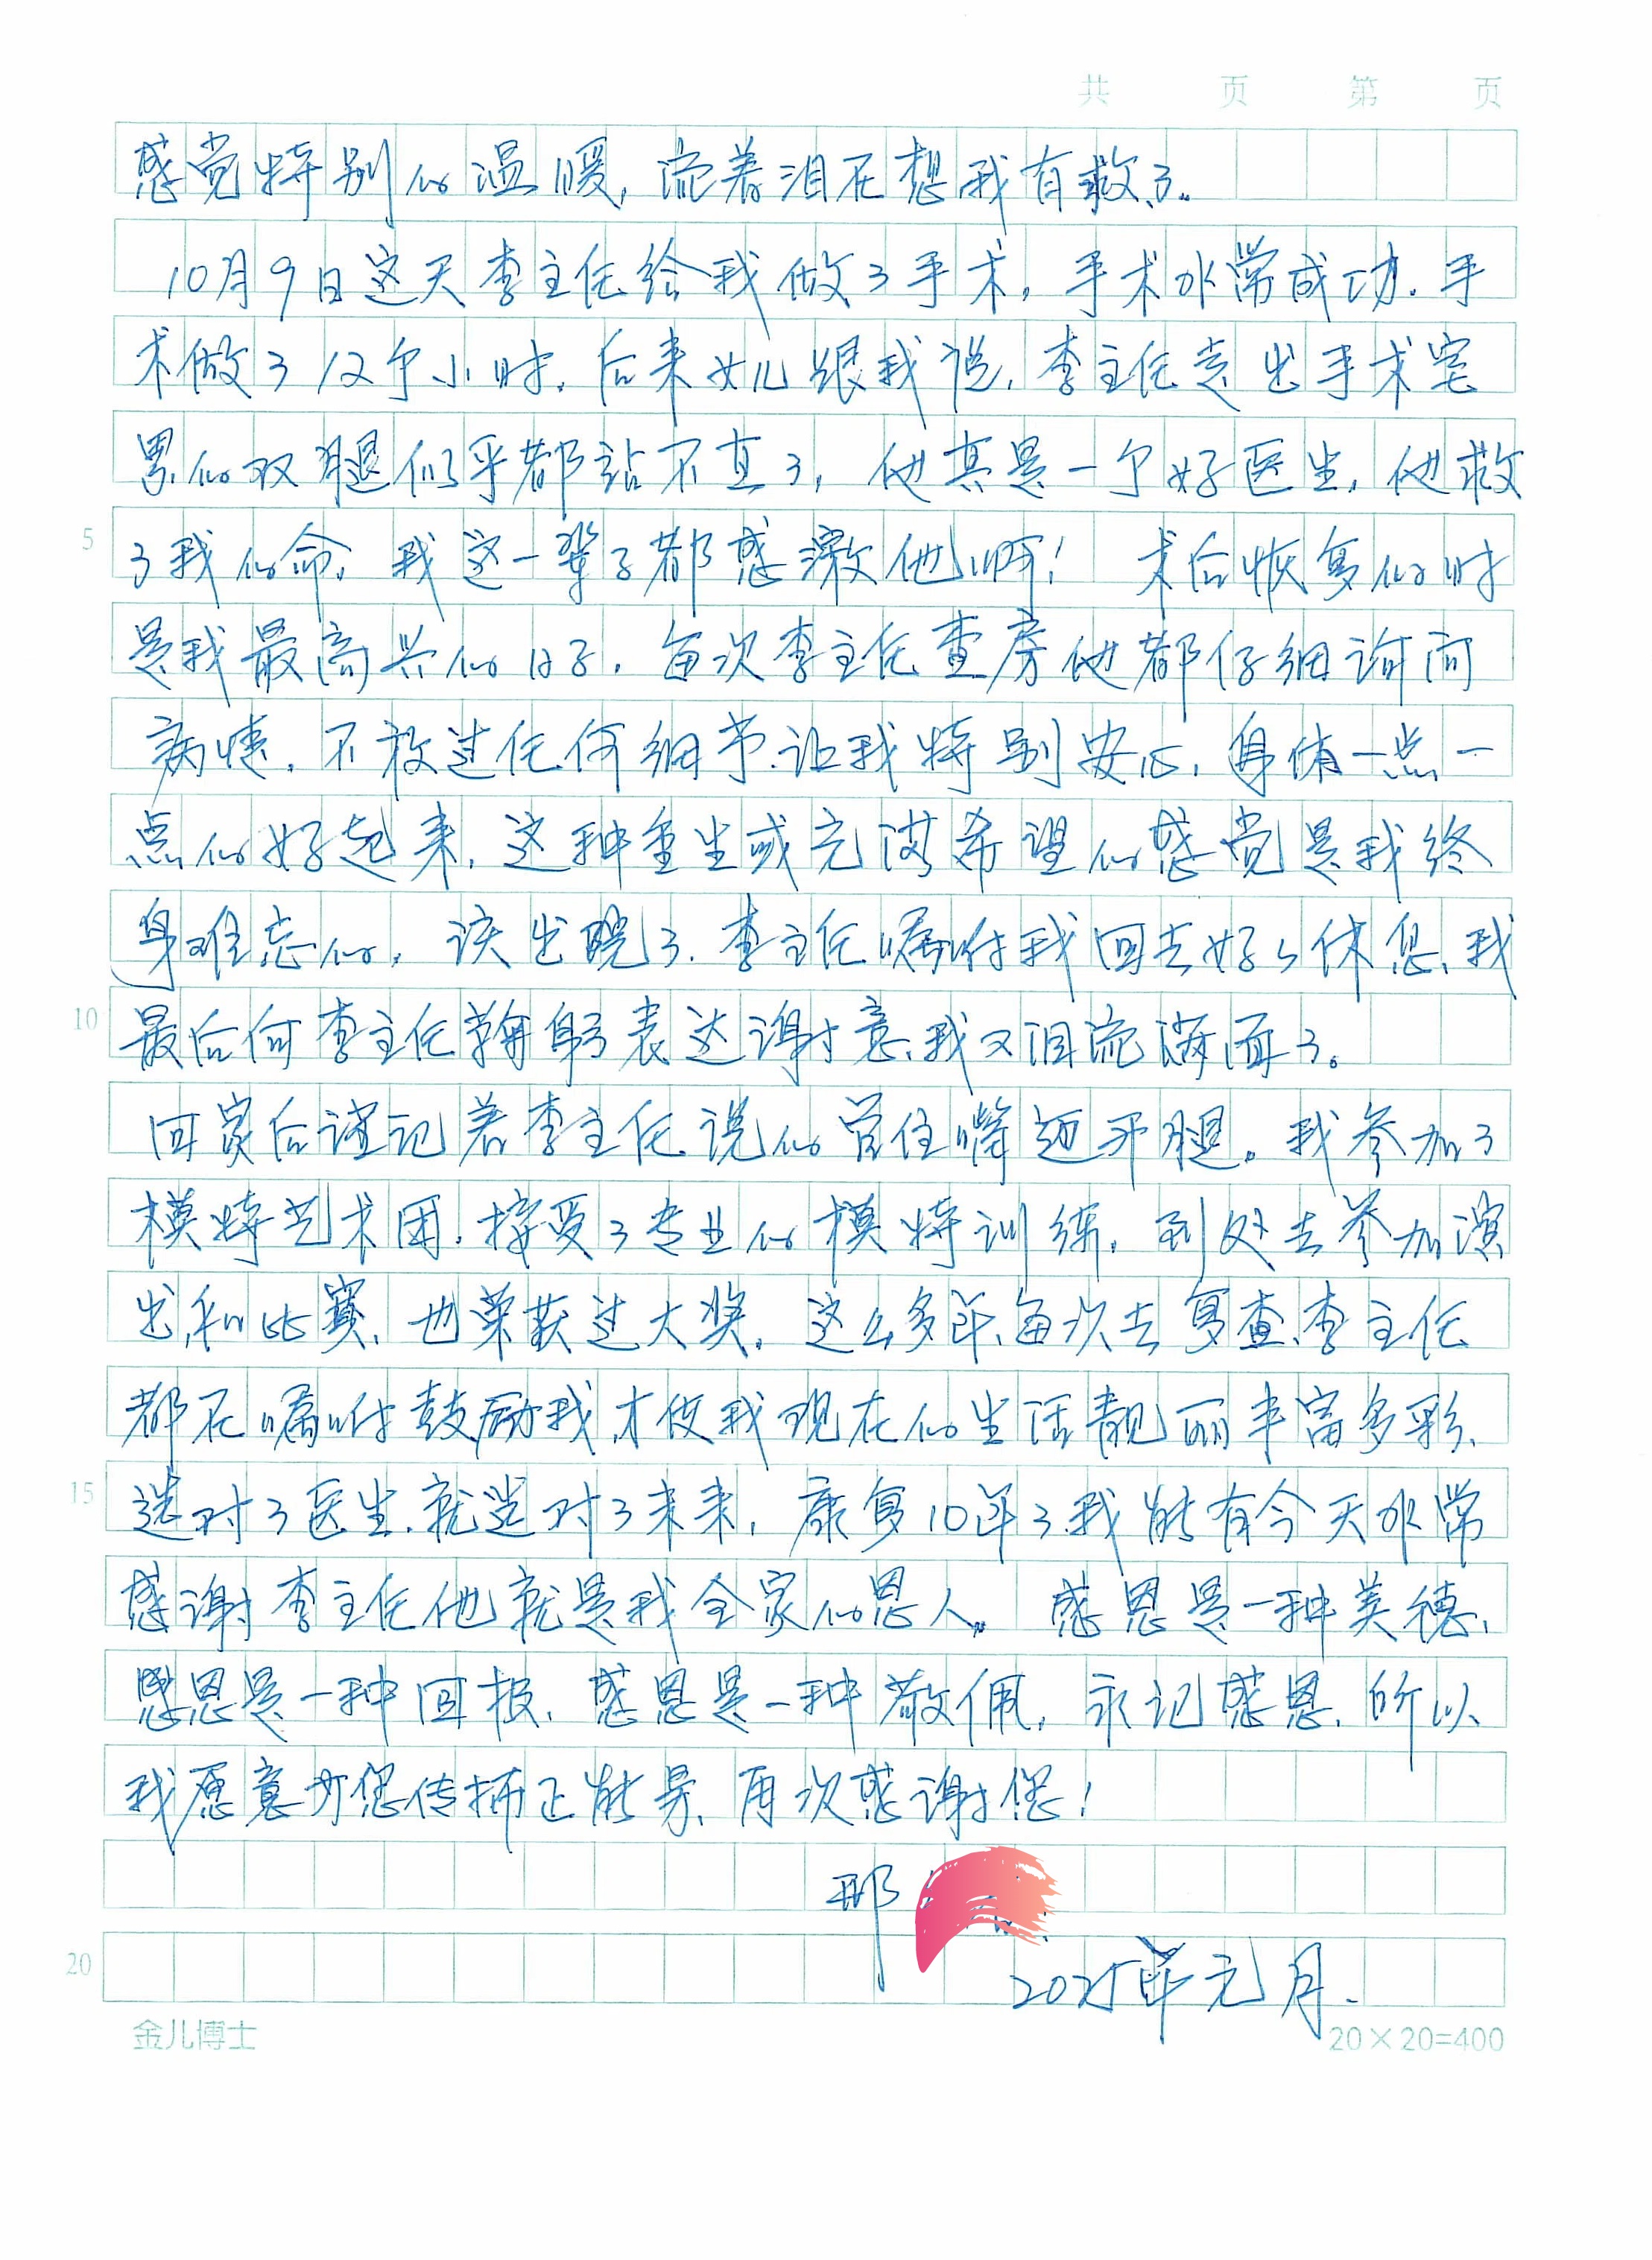 共 页 第 页
感觉特别的温暖,流着泪在想我有救了。
10月9日这天李主任给我做了手术,手术非常成功.手
术做了12个小时.后来女儿跟我说,李主任走出手术室
累的双腿似乎都站不直了,他真是一个好医生,他救
5 了我的命,我这一辈子都感激他啊! 术后恢复的时
是我最高兴的日子.每次李主任查房他都仔细询问
病情.不放过任何细节.让我特别安心,身体一点一
点的好起来,这种重生或充满希望的感觉是我终
身难忘的,该出院了.李主任嘱咐我回去好好休息、我
10 最后向李主任鞠躬表达谢意、我又泪流满面了。
回家后谨记着李主任说的管住嘴迈开腿。我参加了
模特艺术团.接受了专业的模特训练,到处去参加演
出和比赛、也荣获过大奖.这么多年、每次去复查、李主任
都在嘱咐鼓励我,才使我现在的生活靓丽丰富多彩、
15 选对了医生.就选对了未来,康复10年了.我能有今天非常
感谢李主任他就是我全家的恩人。 感恩是一种美德、
感恩是一种回报、感恩是一种敬佩,永记感恩、所以
我愿意为您传播正能量、再次感谢您!
邢
20 2025年元月.
金儿博士 20×20=400